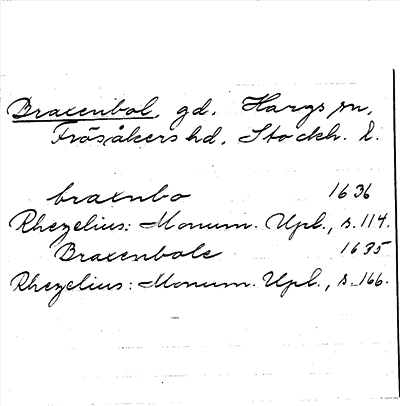 Braxenbol, gd. Hargs sn,
Frösåkers hd, Stockh. l.
braxnbo 1636
Rhezelius: Monum. Upl., s. 114.
Braxenbole 1635
Rhezelius: Monum. Upl., s. 166.